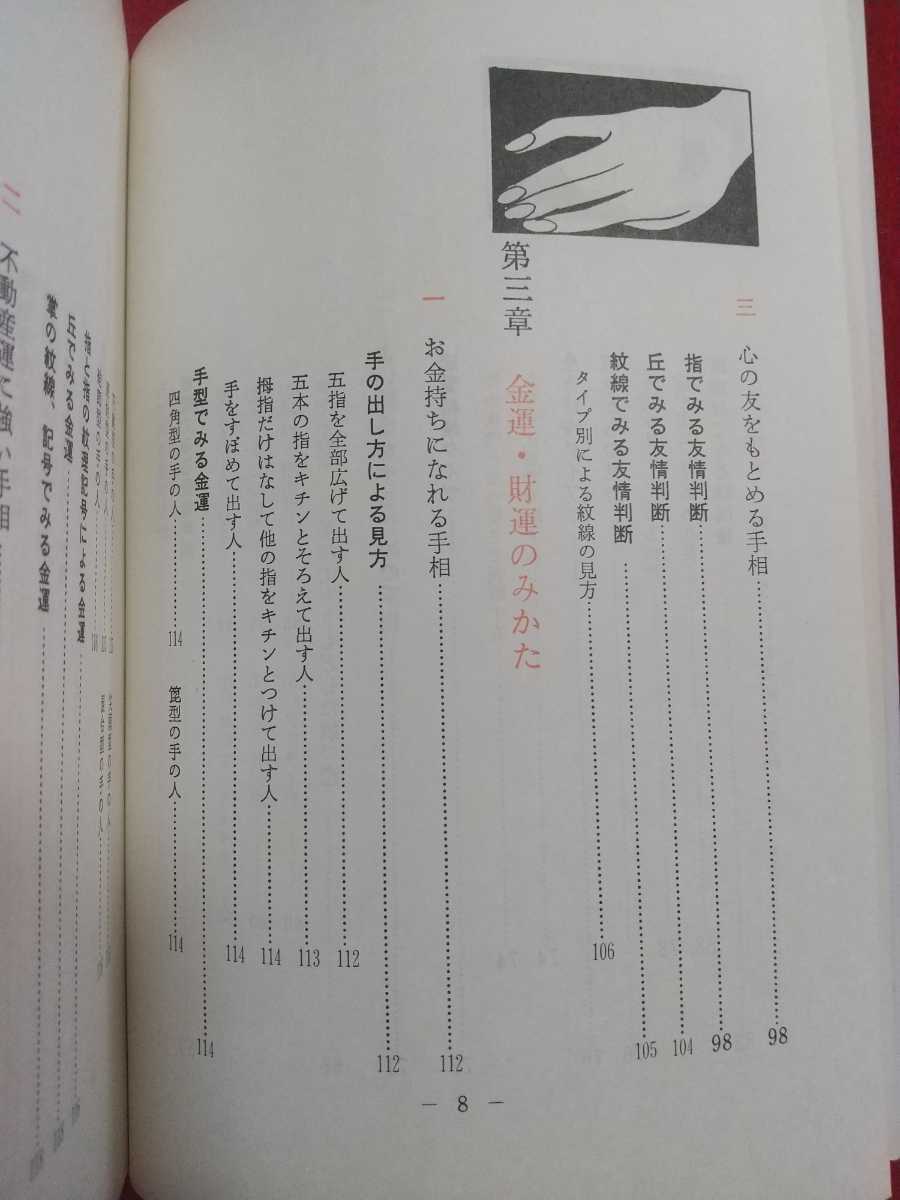 三 心の友をもとめる手相 98
指でみる友情判断 98
丘でみる友情判断 104
紋線でみる友情判断 105
タイプ別による紋線の見方 106
第三章 金運・財運のみかた
一 お金持ちになれる手相 112
手の出し方による見方 112
五指を全部広げて出す人 112
五本の指をキチンとそろえて出す人 113
拇指だけはなして他の指をキチンとつけて出す人 114
手をすぼめて出す人 114
手型でみる金運 114
四角型の手の人 114 箆型の手の人 114
— 8 —
指と指の紋理記号による金運
丘でみる金運
掌の紋線、記号でみる金運
二 不動産運に強い手相